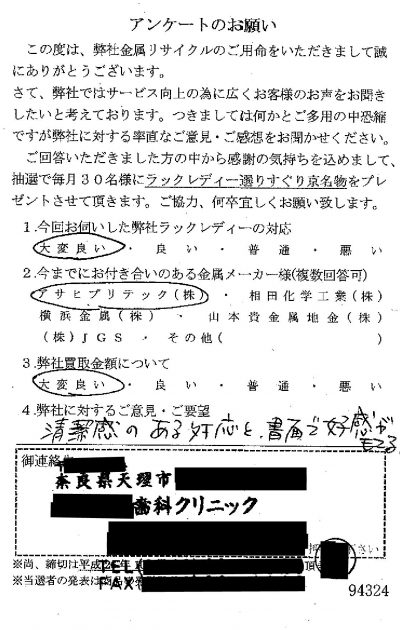 アンケートのお願い
この度は、弊社金属リサイクルのご用命をいただきまして誠
にありがとうございます。
さて、弊社ではサービス向上の為に広くお客様のお声をお聞き
したいと考えております。つきましては何かとご多用の中恐縮
ですが弊社に対する率直なご意見・ご感想をお聞かせください。
ご回答いただきました方の中から感謝の気持ちを込めまして、
抽選で毎月30名様にラックレディー選りすぐり京名物をプレ
ゼントさせて頂きます。ご協力、何卒宜しくお願い致します。
1.今回お伺いした弊社ラックレディーの対応
大変良い ・ 良い ・ 普通 ・ 悪い
2.今までにお付き合いのある金属メーカー様(複数回答可)
アサヒプリテック(株) ・ 相田化学工業(株)
横浜金属(株) ・ 山本貴金属地金(株)
(株)JGS ・ その他( )
3.弊社買取金額について
大変良い ・ 良い ・ 普通 ・ 悪い
4.弊社に対するご意見・ご要望
清潔感のある対応と、書面で好感が
もてる
御連絡先
奈良県天理市
歯科クリニック
ださい
※尚、締切は平成2
TEL
※当選者の発表は
FAX
94324